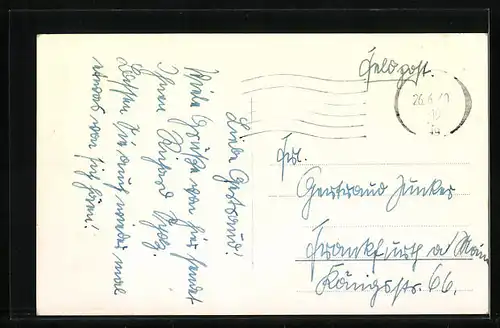 Feldpost.
26.6.40
Liebe Gertraud!
Viele Grüße von hier sendet
Ihnen Richard
Lassen Sie auch wieder mal
etwas von sich hören!
Frl.
Gertraud Junker
Frankfurth a/ Main
Königsstr. 66.